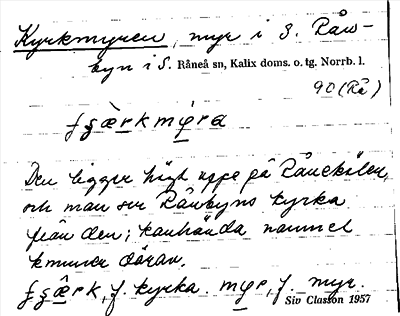 Kyrkmyren, myr i S. Råne-
byn i S. Råneå sn, Kalix doms. o. tg. Norrb. l.
90 (Rå)
Den ligger högt uppe på Rånekölen,
och man ser Rånbyns kyrka
från den; kanhända namnet
kommer därav.
f. kyrka. f. myr.
Siv Classon 1957